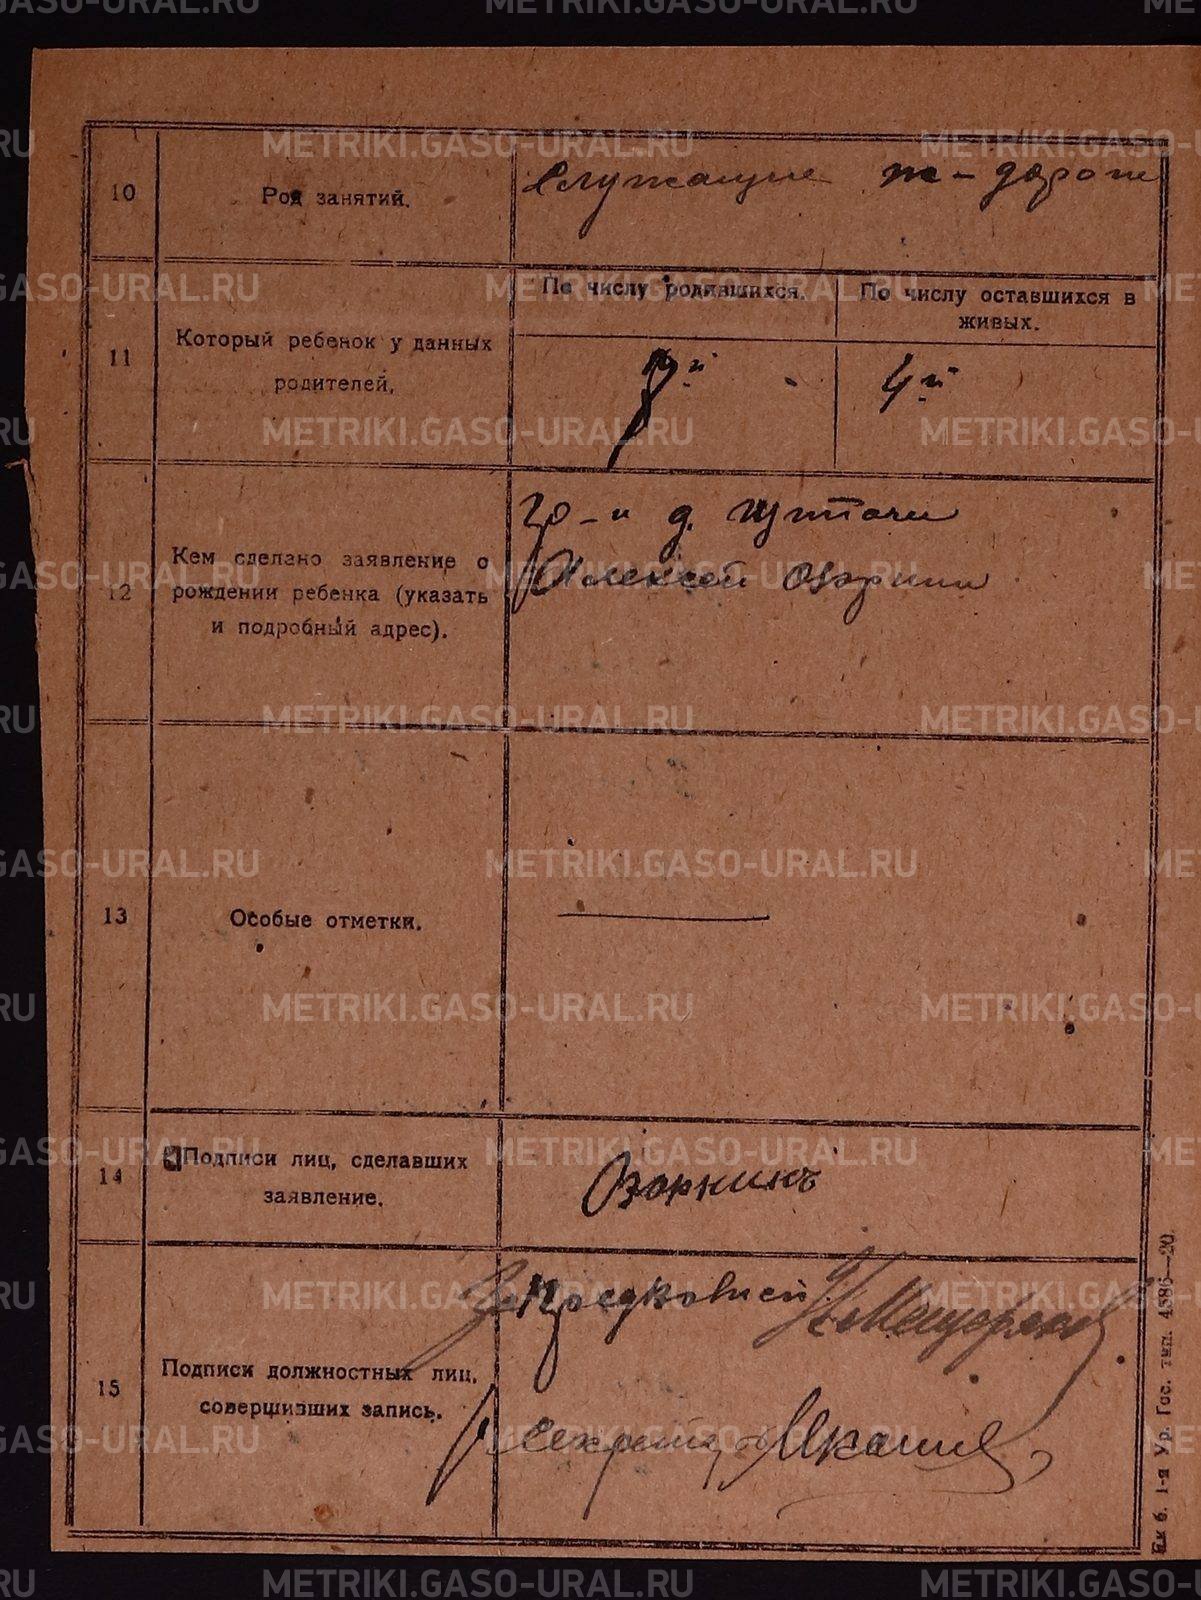 METRIKI.GASO-URAL.RU
10
Род занятий.
Служащие ж-дороги
11
Который ребенок у данных
родителей.
По числу родившихся.
По числу оставшихся в
живых.
4й
12
Кем сделано заявление о
рождении ребенка (указать
и подробный адрес).
гр-н д.
Алексей Озорнин
13
Особые отметки.
14
Подписи лиц, сделавших
заявление.
Озорнинъ
15
Подписи должностных лиц,
совершивших запись.
Секретарь
1-я Ур. Гос. тип. 4386—20.